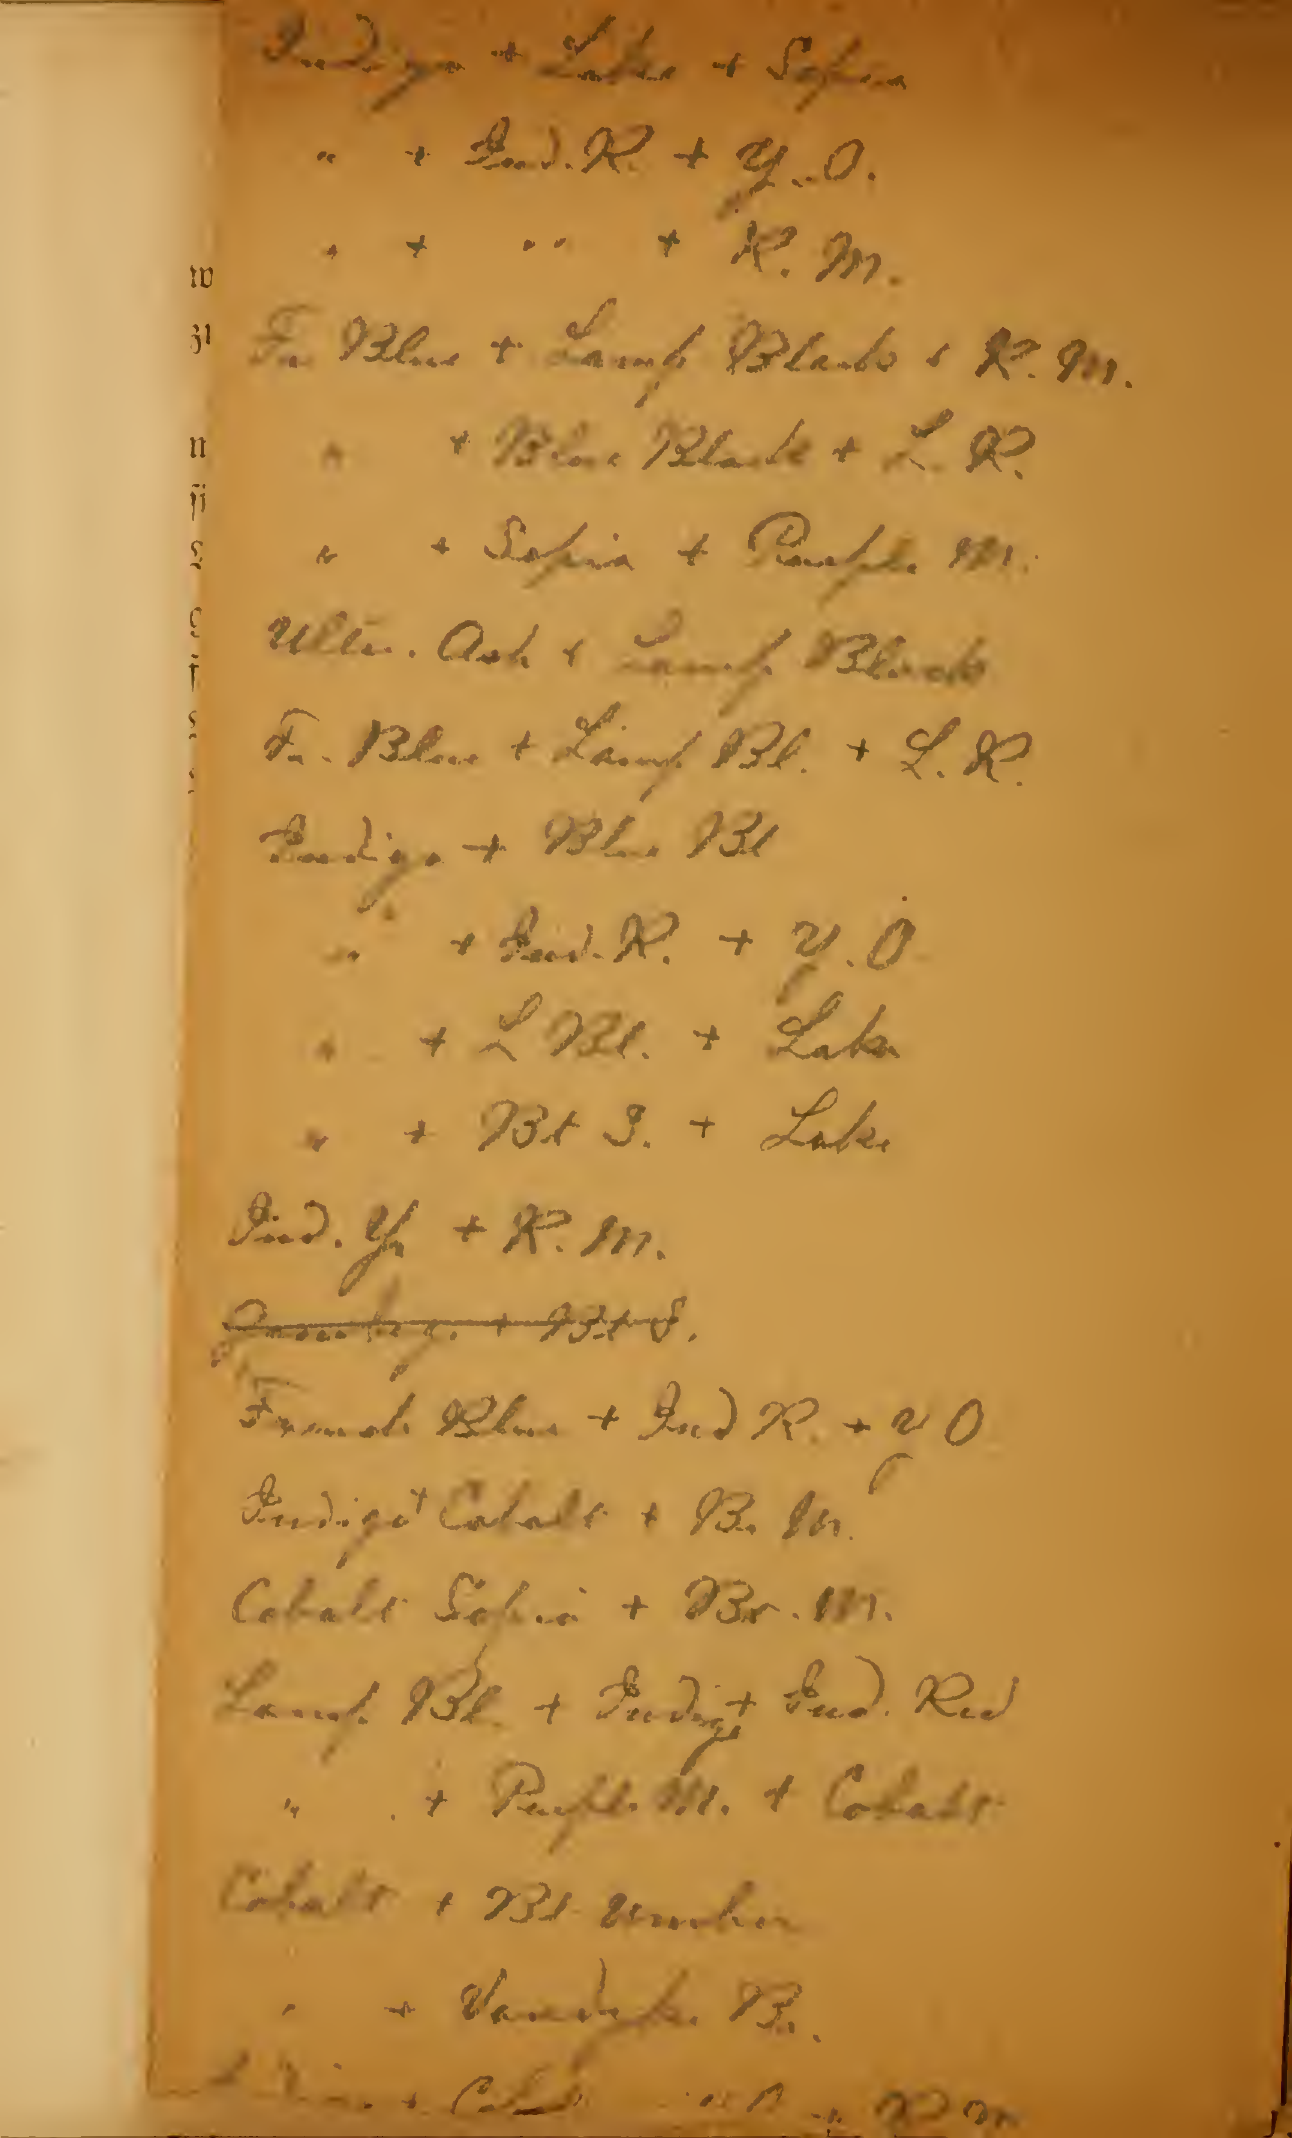 Indigo + Lake + Sepia
" + Ind. R. + Y. O.
" + " " + R. M.
Fr Blue + Lamp Black + R. M.
" + Blue Black + L. R.
" + Sepia + Purple M.
Ultr. Ash + Lamp Black
Fr. Blue + Lamp Bl. + L. R.
Indigo + Blue Bl
" + Ind. R. + Y. O
" + L Bl. + Lake
" + Bt S. + Lake
Ind. Y. + R. M.
+ Bt S.
French Blue + Ind R. + Y O
Indigo + Cobalt + Br M.
Cobalt Sepia + Br. M.
Lamp Bl. + Indigo + Ind. Red
" + Purple M. + Cobalt
Cobalt + Bt Umber
" + Vandyke Br.
w
zi
n